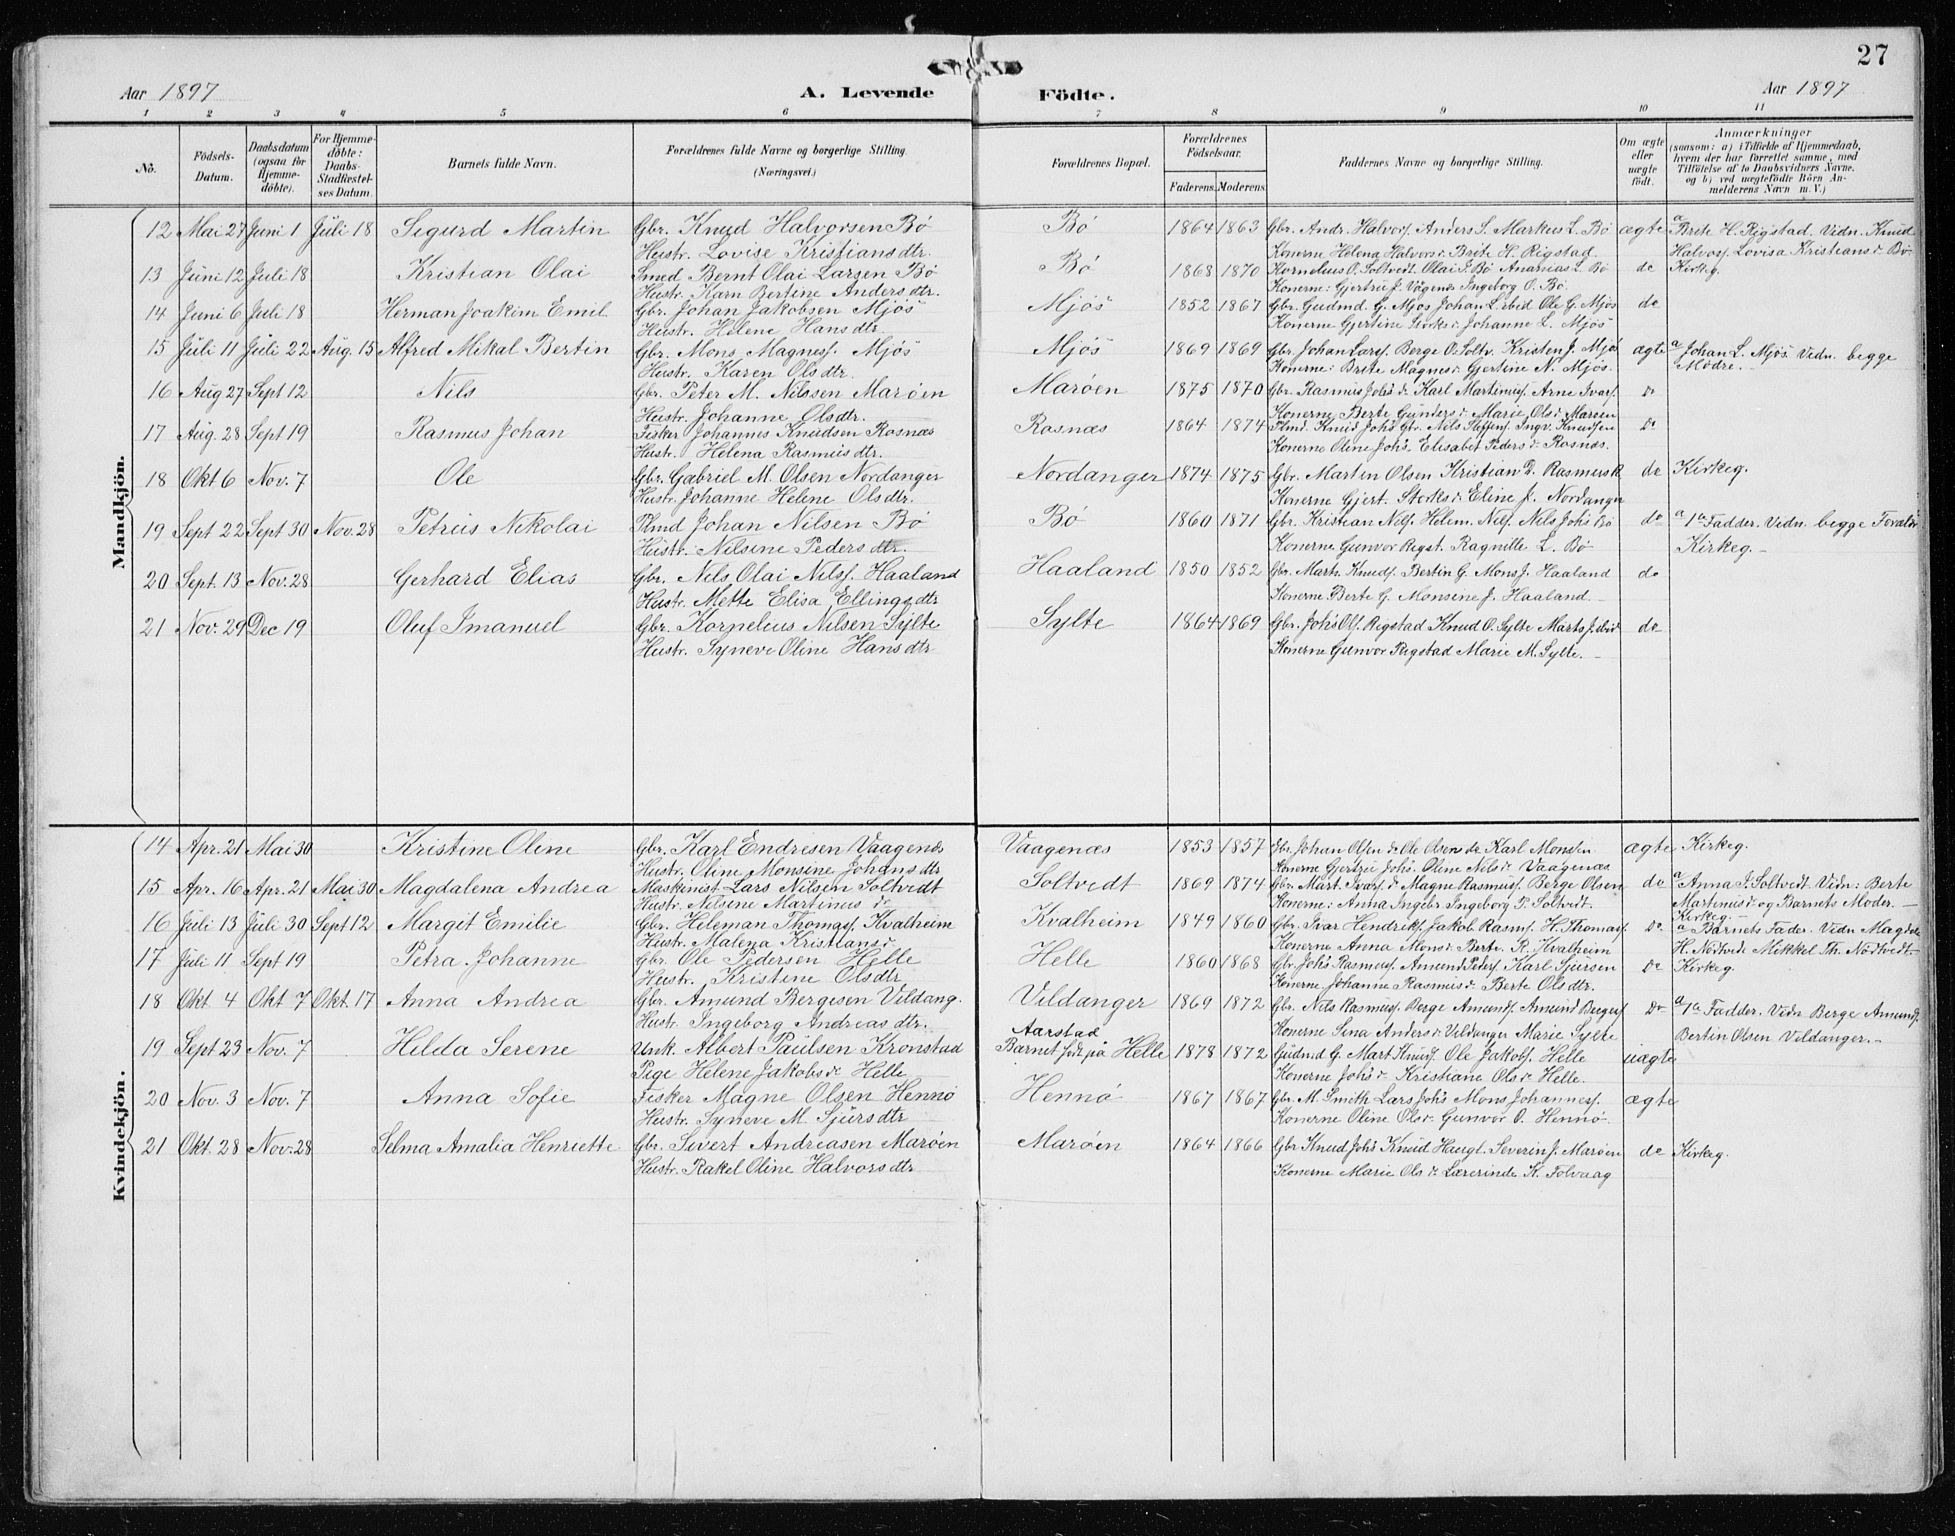 27
Aar 1897 A. Levende Födte. Aar 1897
1 2 3 4 5 6 7 8 9 10 11
No.
Födsels-Datum.
Daabsdatum (ogsaa for Hjemme-döbte).
For Hjemme-döbte: Daabs-Stadfæstel-ses Datum.
Barnets fulde Navn.
Forældrenes fulde Navne og borgerlige Stilling. (Næringsvei.)
Forældrenes Bopæl.
Forældrenes Födselsaar.
Faderens. Moderens.
Faddernes Navne og borgerlige Stilling.
Om ægte eller uægte födt.
Anmærkninger (saasom: a) i Tilfælde af Hjemmedaab, hvem der har forrettet samme, med Tilföielse af to Daabsvidners Navne. og b) ved uægtefödte Börn An-melderens Navn m. V.)
Mandkjön.
12 Mai 27 Juni 1 Juli 18 Sigurd Martin Gbr. Knud Halvorsen Bö Bö 1864 1863 Gbr. Andr. Halvors. Anders S. Markus L. Bö ægte a Brite H. Rigstad. Vidn. Knud
Hustr. Lovise Kristiansdtr. Konerne Helena Halvorsdr. Brite H. Rigstad. Halvors. Lovisa Kristiansdr. Bö.
13 Juni 12 Juli 18 Kristian Olai Smed Bernt Olai Larsen Bö Bö 1868 1870 Kornelius O. Soltvedt. Olai J. Bö Ananias L. Bö do Kirkeg.
Hustr. Karn Bertine Andersdtr. Konerne: Gjertrie J. Vågenes Ingeborg O. Bö.
14 Juni 6 Juli 18 Herman Joakim Emil Gbr. Johan Jakobsen Mjös Mjös 1852 1867 Gbr. Gudmd. G. Mjos Johan L. ibid Ole G. Mjös do
Hustr. Helene Hansdtr. Konerne Gjertine Storksdr. Johanne L. Mjös
15 Juli 11 Juli 22 Aug. 15 Alfred Mikal Bertin Gbr. Mons Magness. Mjös Mjös 1869 1869 Gbr. Johan Larss. Berge O. Soltv. Kristen J. Mjös ægte a Johan L. Mjös. Vidn. begge
Hustr. Karen Olsdtr. Konerne: Brite Magnesdr. Gjertine N. Mjös. Mödre.
16 Aug 27 Sept 12 Nils Gbr. Peter M. Nilssen Maröen Maröen 1875 1870 Gbr. Rasmus Johs. dr. Karl Martinuss. Arne Ivars. do
Hustr. Johanne Olsdtr. Konerne Berte Guntersdr. Marie Olsdr. Maröen
17 Aug. 28 Sept 19 Rasmus Johan Fisker Johannes Knudsen Rosnæs Rosnæs 1864 1874 Knud Johs Gbr. Nils Steffens. Ingv. Knudsen Do
Hustr. Helena Rasmusdtr. Konerne Oline Johs. Elisabet Pedersdr. Rosnæs.
18 Okt 6 Nov. 7 Ole Gbr. Gabriel M. Olsen Nordanger Nordanger 1874 1875 Gbr. Martin Olsen Kristian D. Rasmus K do Kirkeg.
Hustr. Johanne Helene Olsdtr. Konerne Gjert. Storksdr. Eline J. Nordanger
19 Sept 22 Sept 30 Nov. 28 Petrus Nikolai Johan Nilsen Bö Bö 1860 1871 Gbr. Kristian Nils. Helem. Nils. Nils Johs Bö do a 1ste Fadder. Vidn. begge Forældre
Hustr. Nilsine Pedersdtr. Konerne Gunvor Rigst. Ragnille L. Bö Kirkeg.
20 Sept. 13 Nov. 28 Gerhard Elias Gbr. Nils Olai Nilss. Haaland Haaland 1850 1852 Gbr. Mart. Knuds. Bertin G. Mons J. Haaland do
Hustr. Mette Elisa Ellingsdtr Konerne Berte G. Monsine J. Haaland.
21 Nov. 29 Dec 19 Oluf Imanuel Gbr. Kornelius Nilsen Sylte Sylte 1864 1869 Gbr. Johs Ols. Rigstad Knud O. Sylte Marts J. ibid do
Hustr. Syneve Oline Hansdtr Konerne Gunvor Rigstad Marie M. Sylte.
Kvindekjön.
14 Apr. 21 Mai 30 Kristine Oline Gbr. Karl Endresen Vaagenes Vaagenæs 1853 1857 Gbr. Johan Olsn do Ole Olsen do Karl Monsen ægte Kirkeg.
Hustr. Oline Monsine Johansdtr Konerne Gjertrie Johs. Oline Nilsdr. Vaagenæs
15 Apr. 16 Apr. 21 Mai 30 Magdalena Andrea Maskenist Lars Nilsen Soltvedt Soltvedt 1869 1874 Gbr. Mart. Ivars. do Magne Rasmuss. Berge Olsen do a Anna J. Soltvedt. Vidn: Berte
Hustr. Nilsine Martinusdr Konerne: Anna Ingebr. Ingeborg P. Soltvedt. Martinusdr og Barnets Moder.
Kirkeg.
16 Juli 13 Juli 30 Sept 12 Margit Emilie Gbr. Heleman Thomass. Kvalheim Kvalheim 1849 1860 Gbr. Ivar Hendriks. Jakob Rasms. H. Thomass. Do a Barnets Fader. Vidn Magdele
Hustr. Malena Kristiansdr Konerne Anna Monsdr. Berte R. Kvalheim H. Nodtvedt Mikkel Th. Nodtvedt.
17 Juli 11 Sept 19 Petra Johanne Gbr. Ole Pedersen Helle Helle 1860 1868 Gbr. Johs Rasmuss. Amund Peders. Karl Sjursen Do Kirkeg.
Hustr. Kristine Olsdtr Konerne Johanne Rasmusdr. Berte Olsdr.
18 Okt 4 Okt 7 Okt. 17 Anna Andrea Gbr. Amund Bergesen Vildang. Vildanger 1869 1872 Gbr. Nils Rasmuss. Berge Amunds. Amund Berges. Do a 1ste Fadder. Vidn Berge Amunds.
Hustr. Ingeborg Andreasdtr. Konerne Sina Andersdr Vildanger Marie Sylte Bertin Olsen Vildanger.
19 Sept 23 Nov. 7 Helda Serene Unk. Albert Paulsen Kronstad Aarstad Barnet født på Helle 1878 1872 Gudmd G. Mart Knuds. Ole Jakobs. Helle uægte
Pige Helene Jakobsdr. Helle Konerne Johs dr. Kristiane Olsdr. Helle.
20 Nov. 3 Nov. 7 Anna Sofie Fisker Magne Olsen Hennö Hennö 1867 1867 Gbr. M. Smith Lars Johs Mons Johanness. ægte
Hustr. Syneve M. Sjursdtr Konerne Oline Olsdr. Gunvor O. Hennö.
21 Okt. 28 Nov. 28 Selma Amalia Henriette Gbr. Sivert Andreasen Maröen Maröen 1864 1866 Gbr. Knud Johs Knud Haugl. Severin J. Maröen do Kirkeg.
Hustr. Rakel Oline Halvorsdtr Konerne Marie Olsdr. Lærerinde K. Tolvaag